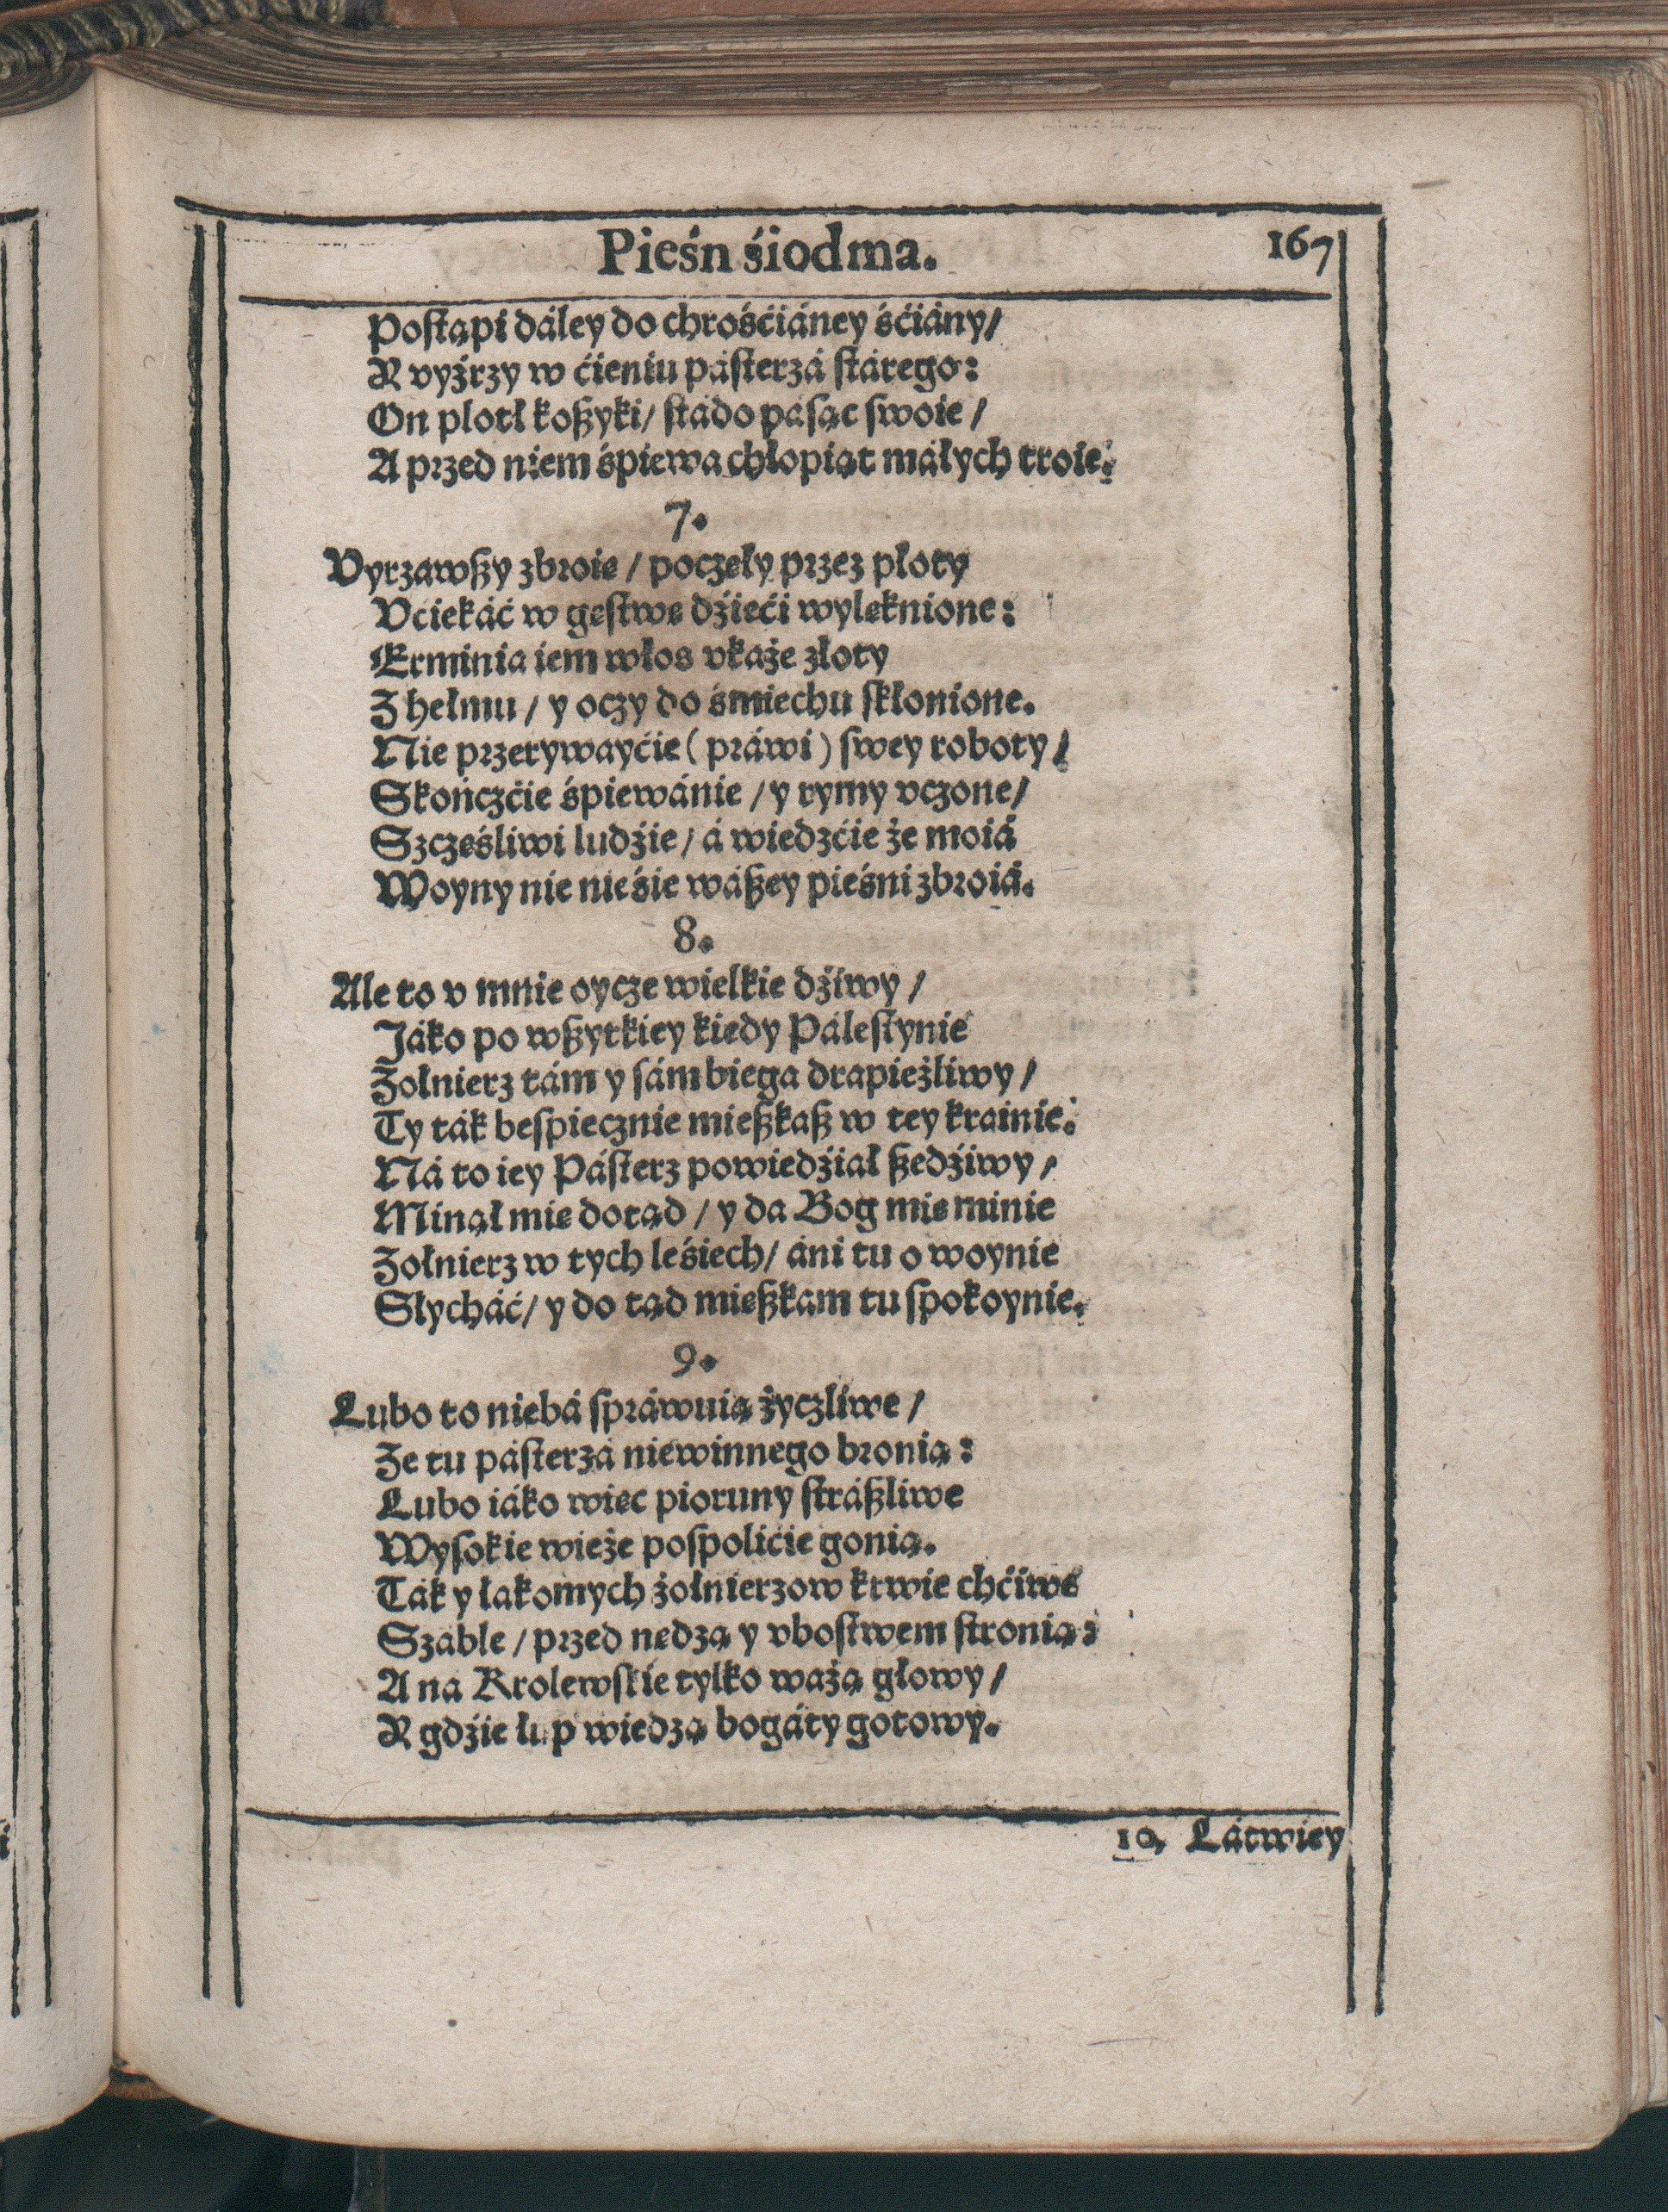 Pieśń śiodma.
167
Postąpi dáley do chrośćiáney śćiány/
R vyźrzy w ćieniu pásterzá stárego:
On plotł koßyki/ stádo pásąc swoie/
A przed niem śpiewa chłopiąt małych troie.
7.
Vyrzawßy zbroie/ poczeły przez płoty
Vciekáć w gęstwę dźieći wylęknione:
Erminia iem włos vkaże złoty
Z hełmu/ y oczy do śmiechu skłonione.
Nie przerywayćie (práwi) swey roboty/
Skończćie śpiewánie/ y rymy vczone/
Szczęśliwi ludźie/ á wiedzćie że moiá
Woyny nie nieśie wáßey pieśni zbroiá.
8.
Ale to v mnie oycze wielkie dźiwy/
Jáko po wßytkiey kiedy Pálestynie
Żołnierz tám y sám biega drapieżliwy/
Ty ták bespiecznie mießkaß w tey krainie.
Ná to iey Pásterz powiedźiał ßedźiwy/
Minął mię dotąd/ y da Bog mię minie
Zołnierz w tych leśiech/ áni tu o woynie
Słycháć/ y do tąd mießkam tu spokoynie.
9.
Lubo to niebá spráwuią życzliwe/
Ze tu pásterzá niewinnego bronią:
Lubo iáko więc pioruny stráßliwe
Wysokie wieże pospolićie gonią.
Ták y łakomych żołnierzow krwie chćiwe
Száble/ przed nędzą y vbostwem stronią:
A na Krolewskie tylko ważą głowy/
R gdźie łup wiedzą bogáty gotowy.
10. Łátwiey